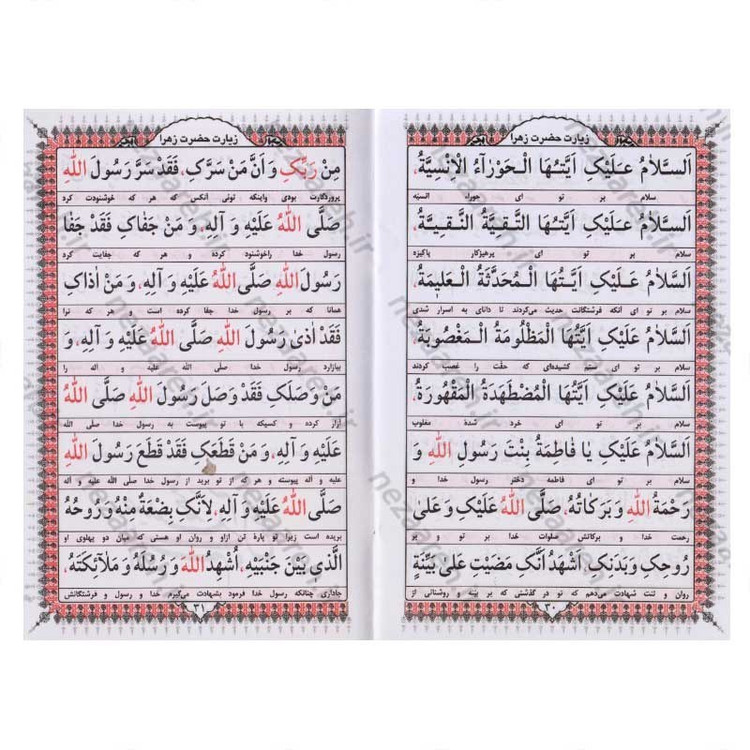 زیارت حضرت زهرا
اَلسَّلاٰمُ عَلَیْکِ اَیَّتُهَا الْحَوْرَآءُ الْاِنْسِیَّةُ،
سلام بر تو ای حوراء انسیّه
اَلسَّلاٰمُ عَلَیْکِ اَیَّتُهَا التَّقِیَّةُ النَّقِیَّةُ،
سلام بر تو ای پرهیزکار پاکیزه
اَلسَّلاٰمُ عَلَیْکِ اَیَّتُهَا الْمُحَدَّثَةُ الْعَلیمَةُ،
سلام بر تو ای آنکه فرشتگانت حدیث می‌کردند تا دانای به اسرار شدی
اَلسَّلاٰمُ عَلَیْکِ اَیَّتُهَا الْمَظْلُومَةُ الْمَغْصُوبَةُ،
سلام بر تو ای ستم کشیده‌ای که حقّت را غصب کردند
اَلسَّلاٰمُ عَلَیْکِ اَیَّتُهَا الْمُضْطَهَدَةُ الْمَقْهُورَةُ،
سلام بر تو ای خرد شدهٔ مغلوب
اَلسَّلاٰمُ عَلَیْکِ یٰا فٰاطِمَةُ بِنْتَ رَسُولِ اللهِ وَ
سلام بر تو ای فاطمه دختر رسول خدا و
رَحْمَةُ اللهِ وَ بَرَکٰاتُهُ، صَلَّی اللهُ عَلَیْکِ وَ عَلیٰ
رحمت خدا و برکاتش صلوات خدا بر تو و بر
رُوحِکِ وَ بَدَنِکِ، اَشْهَدُ اَنَّکِ مَضَیْتِ عَلیٰ بَیِّنَةٍ
روان و تنت شهادت می‌دهم که تو در گذشتی که بر بینه و روشنائی از
۳۰
زیارت حضرت زهرا
مِنْ رَبِّکِ وَ اَنَّ مَنْ سَرَّکِ، فَقَدْ سَرَّ رَسُولَ اللهِ
پروردگارت بودی واینکه توئی آنکس که هر که خوشنودت کرد
صَلَّی اللهُ عَلَیْهِ وَ آلِهِ، وَ مَنْ جَفٰاکِ فَقَدْ جَفٰا
رسول خدا راخوشنود کرده و هر که جفایت کرد
رَسُولَ اللهِ صَلَّی اللهُ عَلَیْهِ وَ آلِهِ، وَ مَنْ اٰذاکِ
همانا که بر رسول خدا جفا کرده است و هر که ترا
فَقَدْ اٰذیٰ رَسُولَ اللهِ صَلَّی اللهُ عَلَیْهِ وَ آلِهِ، وَ
بیازارد رسول خدا صلی الله علیه و آله را
مَنْ وَصَلَکِ فَقَدْ وَصَلَ رَسُولَ اللهِ صَلَّی اللهُ
آزار کرده و کسیکه با تو پیوست به رسول خدا صلی الله
عَلَیْهِ وَ آلِهِ، وَ مَنْ قَطَعَکِ فَقَدْ قَطَعَ رَسُولَ اللهِ
علیه و آله پیوسته و هر که از تو برید از رسول خدا صلی الله علیه و آله
صَلَّی اللهُ عَلَیْهِ وَ آلِهِ، لِاَنَّکِ بِضْعَةٌ مِنْهُ وَ رُوحُهُ
بریده است زیرا تو پارهٔ تن ازاو و روان او هستی که میان دو پهلوی او
الَّذی بَیْنَ جَنْبَیْهِ، اُشْهِدُ اللهَ وَ رُسُلَهُ وَ مَلٰآئِکَتَهُ،
جاداری چنانکه رسول خدا فرمود بشهادت می‌گیرم خدا و رسول و فرشتگانش
۳۱
nezaareh.ir